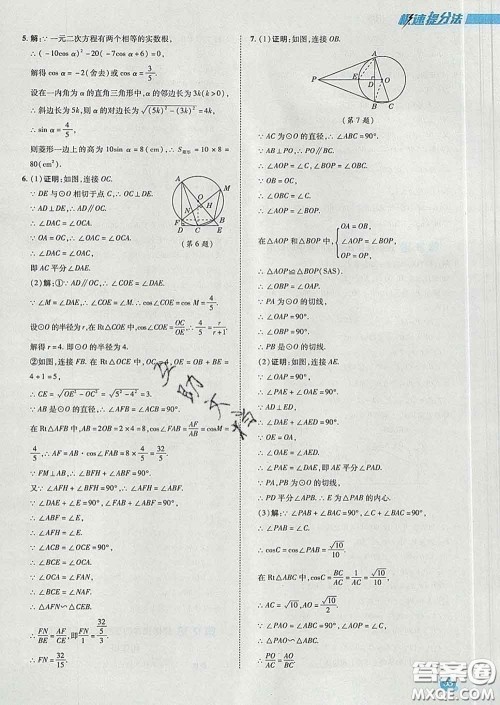 极速提分法
5. 解:∵一元二次方程有两个相等的实数根,
∴(-10cos α)²-20(-7cos α+6)=0.
解得 cos α=-2(舍去)或 cos α=3/5.
设在一内角为 α 的直角三角形中, α 的邻边长为 3k(k>0),
∴斜边长为 5k, α 的对边长为√((5k)²-(3k)²)=4k,
∴sin α=4/5.
则菱形一边上的高为 10sin α=8(cm), ∴S菱形=10×8=
80(cm²).
6. (1)证明:如图,连接 OC.
∵DE 与⊙O 相切于点 C, ∴OC⊥DE.
∵AD⊥DE, ∴AD∥OC.
∴∠DAC=∠OCA.
∵OA=OC, ∴∠OAC=∠OCA.
∴∠DAC=∠OAC,
即 AC 平分∠DAE.
(第 6 题)
(2)解:①∵AD∥OC, ∴∠COE=∠DAE.
∵∠M=∠DAE, ∴∠COE=∠M. ∴cos∠COE=cos M=4/5.
设⊙O 的半径为 r, 在 Rt△COE 中, cos∠COE=OC/OE, ∴4/5=r/(r+1).
解得 r=4. 即⊙O 的半径为 4.
②如图,连接 BF. 在 Rt△OCE 中, OC=4, OE=OB+BE=
4+1=5,
∴CE=√(OE²-OC²)=√(5²-4²)=3.
∵AB 是⊙O 的直径, ∴∠AFB=∠ACB=90°.
在 Rt△AFB 中, AB=2OB=2×4=8, cos∠FAB=AF/AB=cos M=
4/5, ∴AF=4/5AB=4/5×8=32/5.
∵FM⊥AB, ∴∠BFH+∠ABF=90°.
又∵∠DAE+∠E=90°, ∠FAB+∠ABF=90°,
∴∠DAE=∠BFH, ∠ABF=∠E.
∴∠BFH+∠E=90°.
∴∠AFN=∠E.
∵∠ACB=∠OCE=90°,
∴∠ACO=∠BCE.
∵∠OAC=∠ACO,
∴∠BCE=∠OAC.
∴△AFN∽△CEB.
∴FN/BE=AF/CE. 即FN/1=(32/5)/3.
∴FN=32/15.
7. (1)证明:如图,连接 OB.
(第 7 题)
∵AC 为⊙O 的直径, ∴∠ABC=90°.
∵AB⊥PO, ∴PO∥BC.
∴∠AOP=∠C, ∠POB=∠OBC.
∵OB=OC, ∴∠OBC=∠C.
∴∠AOP=∠POB.
在△AOP 和△BOP 中, {OA=OB,
∠AOP=∠BOP,
OP=OP,
∴△AOP≌△BOP(SAS).
∴∠OBP=∠OAP.
∵PA 为⊙O 的切线,
∴∠OAP=90°.
∴∠OBP=90°.
∴PB 是⊙O 的切线.
(2)证明:如图,连接 AE.
∵PA 为⊙O 的切线,
∴∠OAP=90°.
∴∠PAE+∠OAE=90°.
∵AD⊥ED,
∴∠EAD+∠AED=90°.
∵OE=OA,
∴∠OAE=∠AED.
∴∠PAE=∠DAE, 即 EA 平分∠PAD.
∵PA, PB 为⊙O 的切线,
∴PD 平分∠APB. ∴E 为△PAB 的内心.
(3)解:∵∠PAB+∠BAC=90°, ∠C+∠BAC=90°,
∴∠PAB=∠C.
∴cos C=cos∠PAB=√10/10.
在 Rt△ABC 中, cos C=BC/AC=1/AC=√10/10,
∴AC=√10, ∴AO=√10/2.
∵∠PAO=∠ABC=90°, ∠AOP=∠C,
∴△PAO∽△ABC.
∴PO/AC=AO/BC.
互助文档
答案圈
MXQE.COM